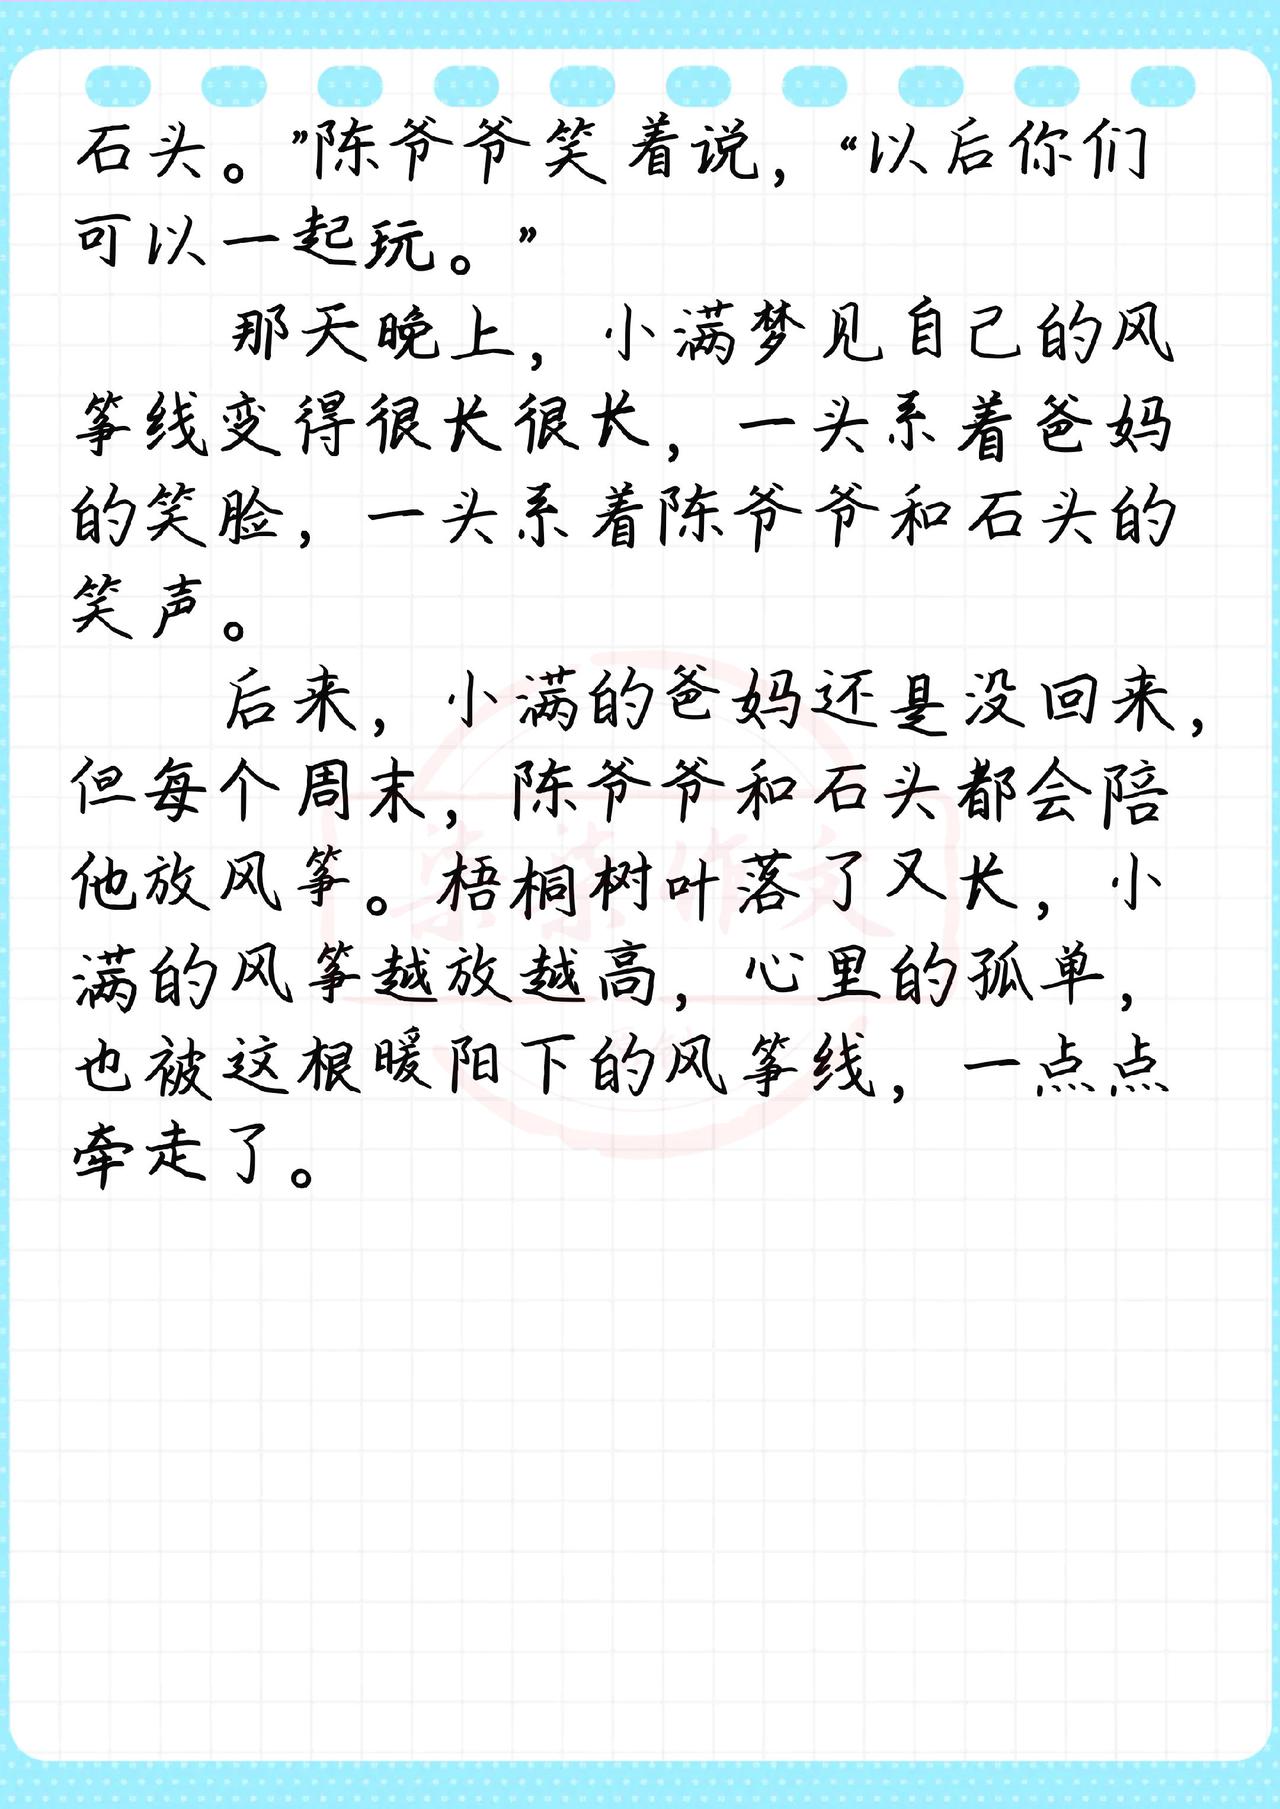 石头。”陈爷爷笑着说，“以后你们
可以一起玩。”
那天晚上，小满梦见自己的风
筝线变得很长很长，一头系着爸妈
的笑脸，一头系着陈爷爷和石头的
笑声。
后来，小满的爸妈还是没回来，
但每个周末，陈爷爷和石头都会陪
他放风筝。梧桐树叶落了又长，小
满的风筝越放越高，心里的孤单，
也被这根暖阳下的风筝线，一点点
牵走了。
柒柒作文